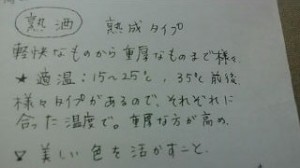 熟酒 熟成タイプ
軽快なものから重厚なものまで様々
★適温:15〜25℃、35℃前後
様々タイプがあるので、それぞれに
合った温度で。重厚な方が高め。
美しい色を活かすこと。